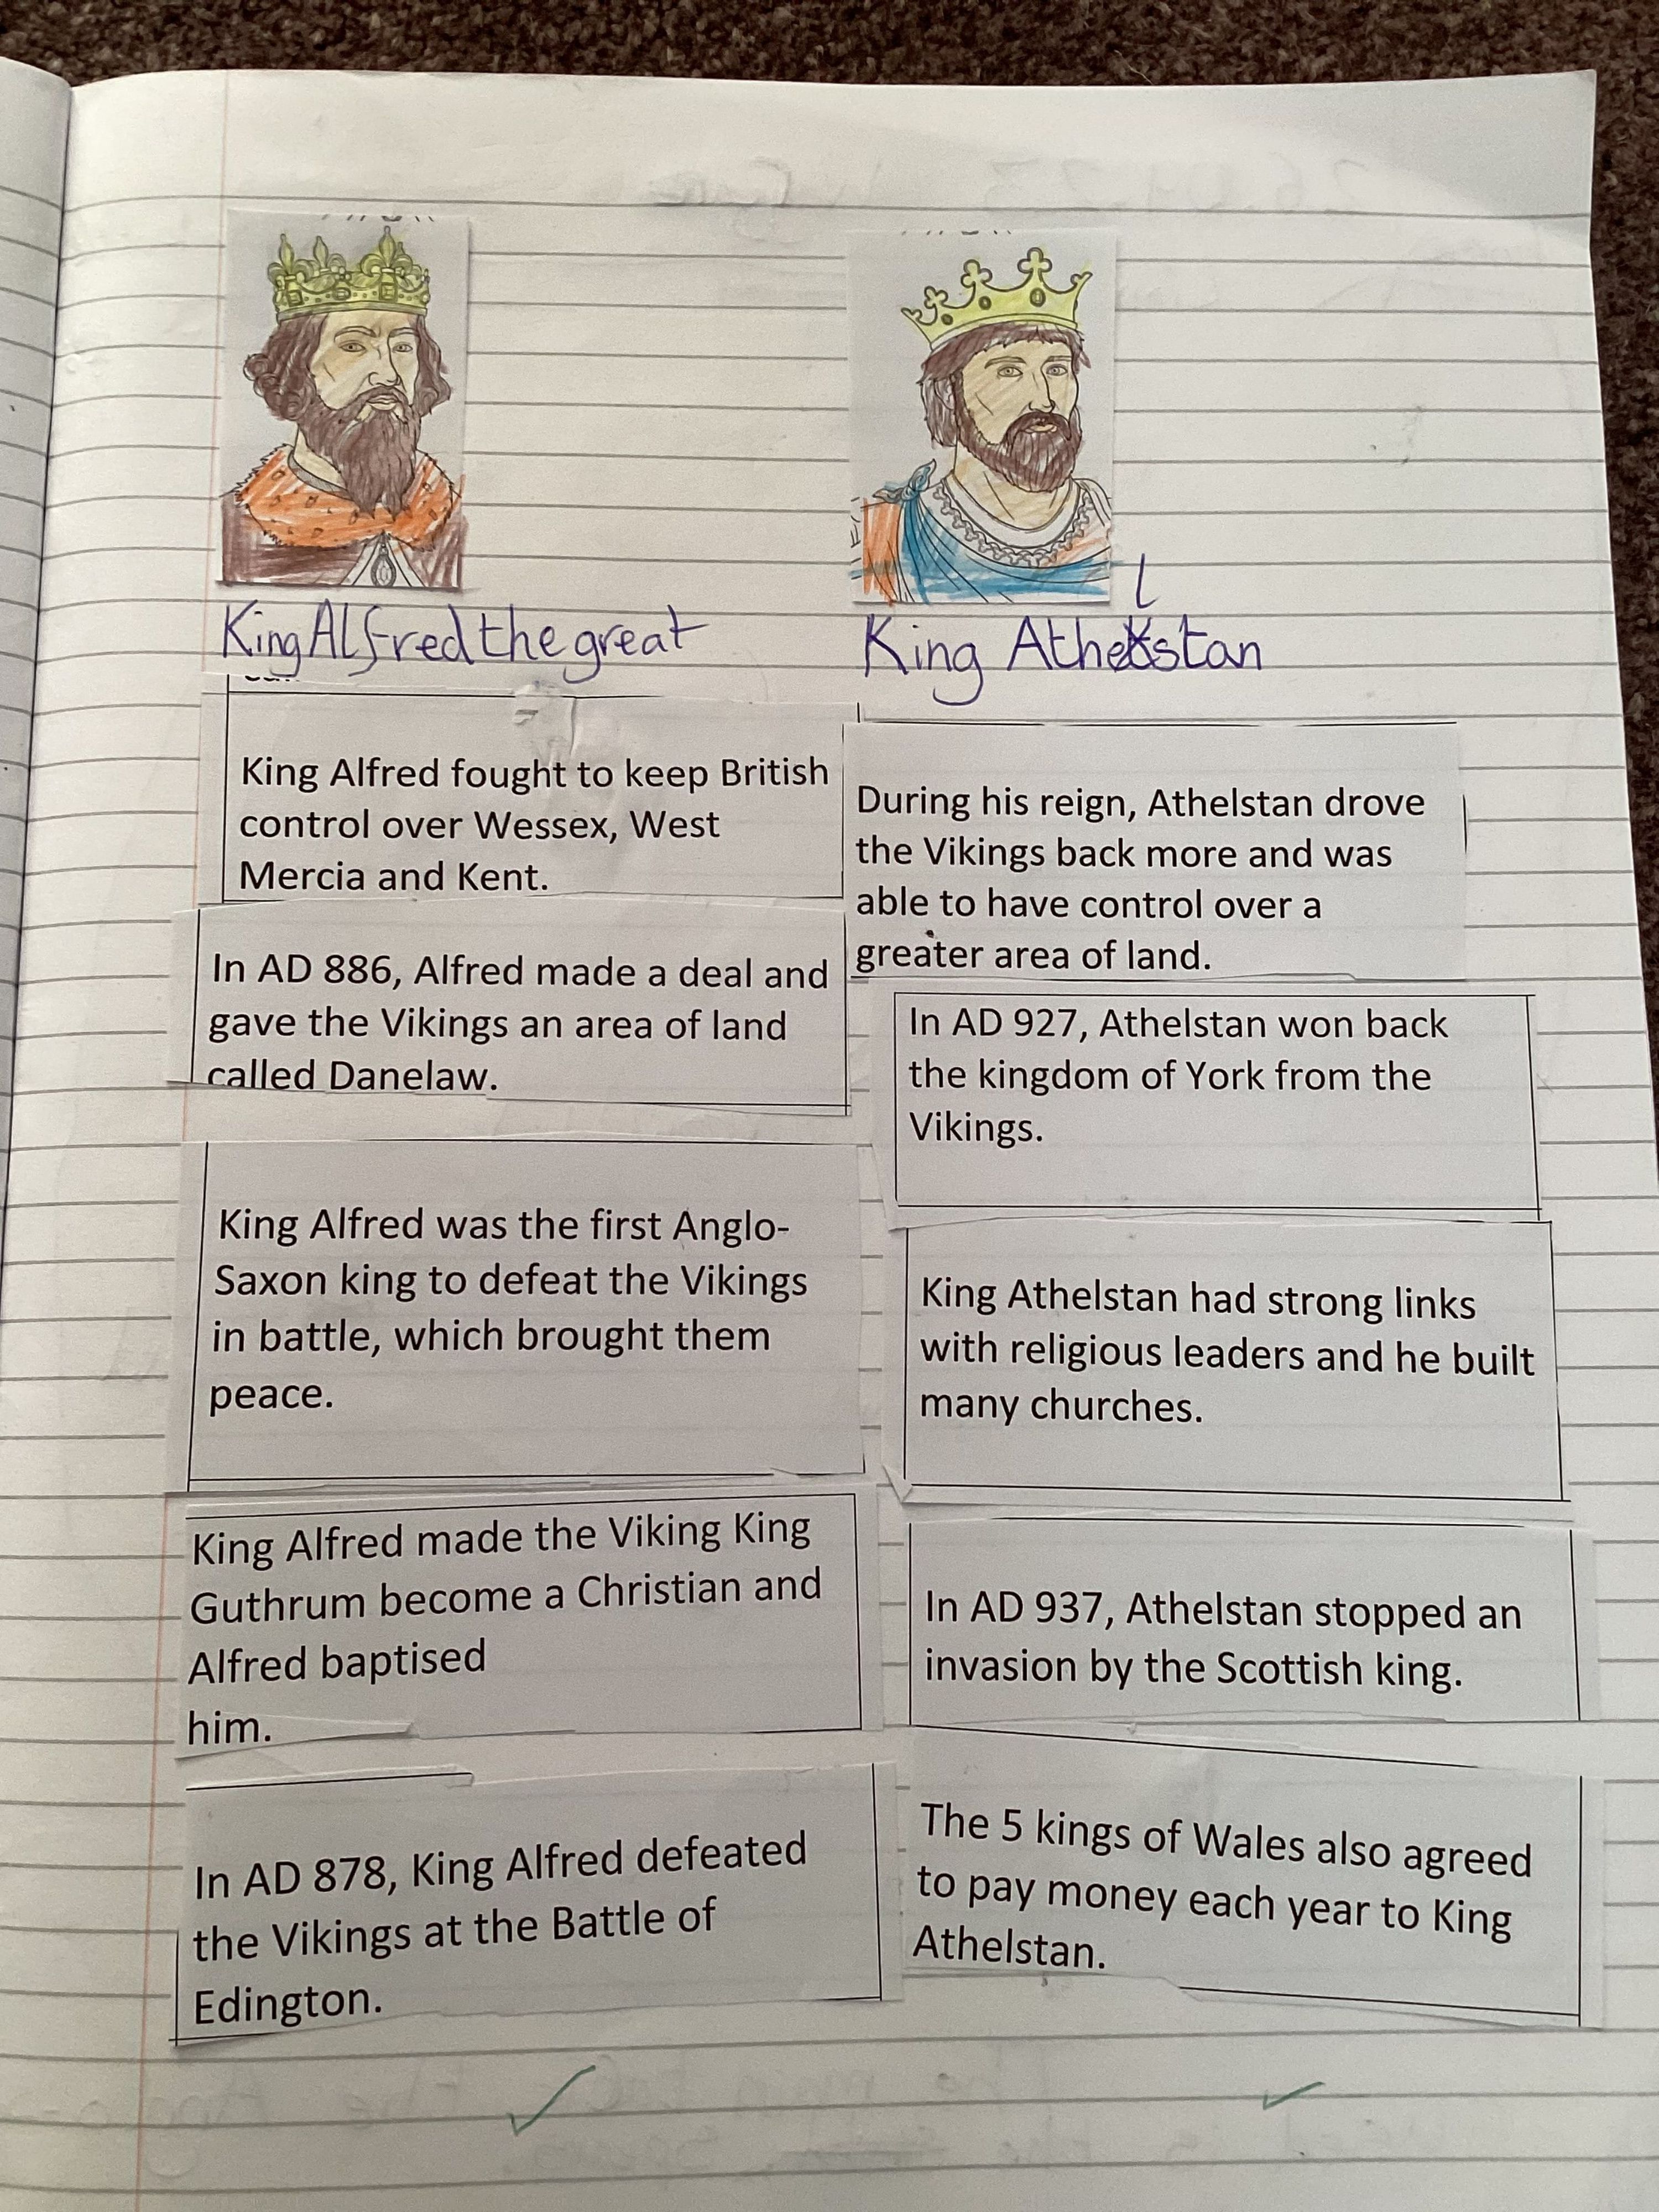 King Alfred the great
King Alfred fought to keep British
control over Wessex, West
Mercia and Kent.
In AD 886, Alfred made a deal and
gave the Vikings an area of land
called Danelaw.
King Alfred was the first Anglo-
Saxon king to defeat the Vikings
in battle, which brought them
peace.
King Alfred made the Viking King
Guthrum become a Christian and
Alfred baptised
him.
In AD 878, King Alfred defeated
the Vikings at the Battle of
Edington.
King Athelstan
During his reign, Athelstan drove
the Vikings back more and was
able to have control over a
greater area of land.
In AD 927, Athelstan won back
the kingdom of York from the
Vikings.
King Athelstan had strong links
with religious leaders and he built
many churches.
In AD 937, Athelstan stopped an
invasion by the Scottish king.
The 5 kings of Wales also agreed
to pay money each year to King
Athelstan.